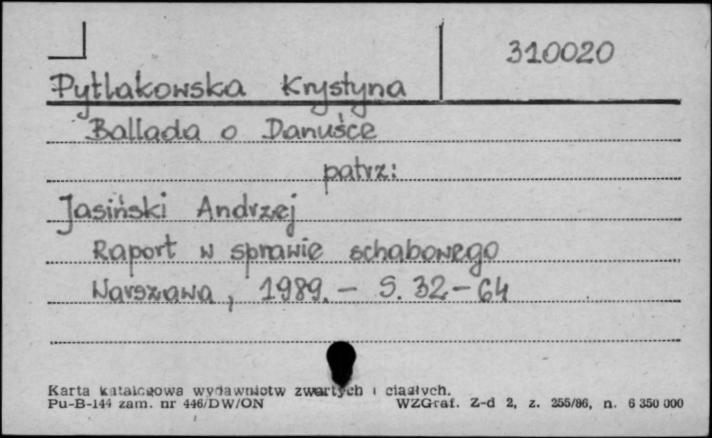 310020
Pytlakowska Krystyna
Ballada o Danuśce
patrz:
Jasiński Andrzej
Raport w sprawie schabowego
Warszawa, 1989. - S. 32-64
Karta katalogowa wydawnictw zwartych i ciągłych.
Pu-B-144 zam. nr 446/DW/ON WZGraf. Z-d 2, z. 255/86, n. 6 350 000